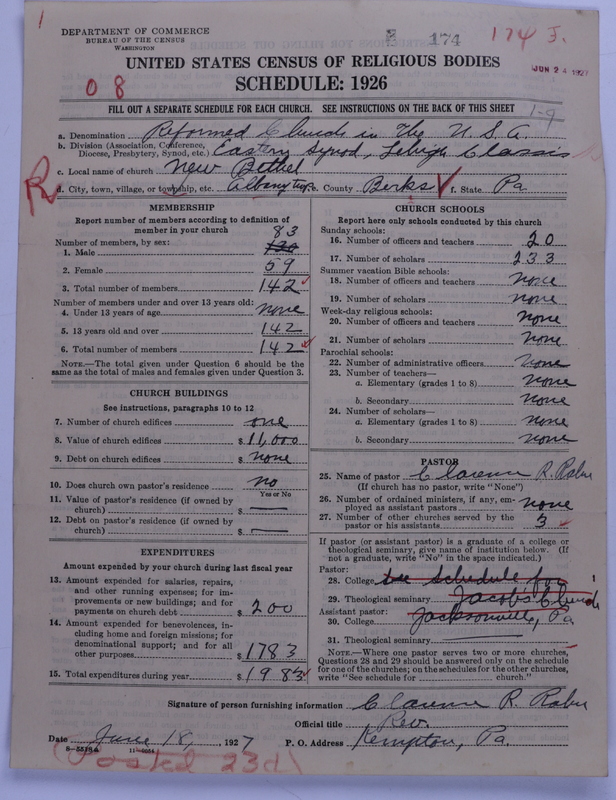 1
DEPARTMENT OF COMMERCE
BUREAU OF THE CENSUS
WASHINGTON
174
174 J.
JUN 24 1927
UNITED STATES CENSUS OF RELIGIOUS BODIES
SCHEDULE: 1926
0 8
FILL OUT A SEPARATE SCHEDULE FOR EACH CHURCH. SEE INSTRUCTIONS ON THE BACK OF THIS SHEET
1-9
a. Denomination Reformed Church in The U.S.A.
b. Division (Association, Conference, Diocese, Presbytery, Synod, etc.) Eastern Synod, Lehigh Classis
c. Local name of church New Bethel
R
d. City, town, village, or township, etc. Albany Twp. e. County Berks f. State Pa
MEMBERSHIP
Report number of members according to definition of
member in your church
Number of members, by sex:
83
1. Male 130
2. Female 59
3. Total number of members 142
Number of members under and over 13 years old:
4. Under 13 years of age none
5. 13 years old and over 142
6. Total number of members 142
NOTE.—The total given under Question 6 should be
same as the total of males and females given under Question 3.
CHURCH BUILDINGS
See instructions, paragraphs 10 to 12
7. Number of church edifices one
8. Value of church edifices $ 11,000
9. Debt on church edifices $ none
10. Does church own pastor's residence? no
Yes or No
11. Value of pastor's residence (if owned by
church) $ —
12. Debt on pastor's residence (if owned by
church) $ —
EXPENDITURES
Amount expended by your church during last fiscal year
13. Amount expended for salaries, repairs,
and other running expenses; for im-
provements or new buildings; and for
payments on church debt $ 200
14. Amount expended for benevolences, in-
cluding home and foreign missions; for
denominational support; and for all
other purposes $ 1783
15. Total expenditures during year $ 1983
CHURCH SCHOOLS
Report here only schools conducted by this church
Sunday schools:
16. Number of officers and teachers 20
17. Number of scholars 233
Summer vacation Bible schools:
18. Number of officers and teachers none
19. Number of scholars none
Week-day religious schools:
20. Number of officers and teachers none
21. Number of scholars none
Parochial schools:
22. Number of administrative officers none
23. Number of teachers—
a. Elementary (grades 1 to 8) none
b. Secondary none
24. Number of scholars—
a. Elementary (grades 1 to 8) none
b. Secondary none
PASTOR
25. Name of pastor Clarence R. Rahn
(If church has no pastor, write "None")
26. Number of ordained ministers, if any, em-
ployed as assistant pastors none
27. Number of other churches served by the
pastor or his assistants 3
If pastor (or assistant pastor) is a graduate of a college or
theological seminary, give name of institution below. (If
not a graduate, write "No" in the space indicated.)
Pastor:
28. College see schedule for
29. Theological seminary Jacobs Church
Assistant pastor:
30. College Jacksonville, Pa
31. Theological seminary
NOTE.—Where one pastor serves two or more churches,
Questions 28 and 29 should be answered only on the schedule
for one of the churches; on the schedules for the other churches,
write "See schedule for ________ church."
Signature of person furnishing information Clarence R. Rahn
Official title Rev.
Date June 18, 1927 P. O. Address Kempton, Pa.
8—5518a 11—9551